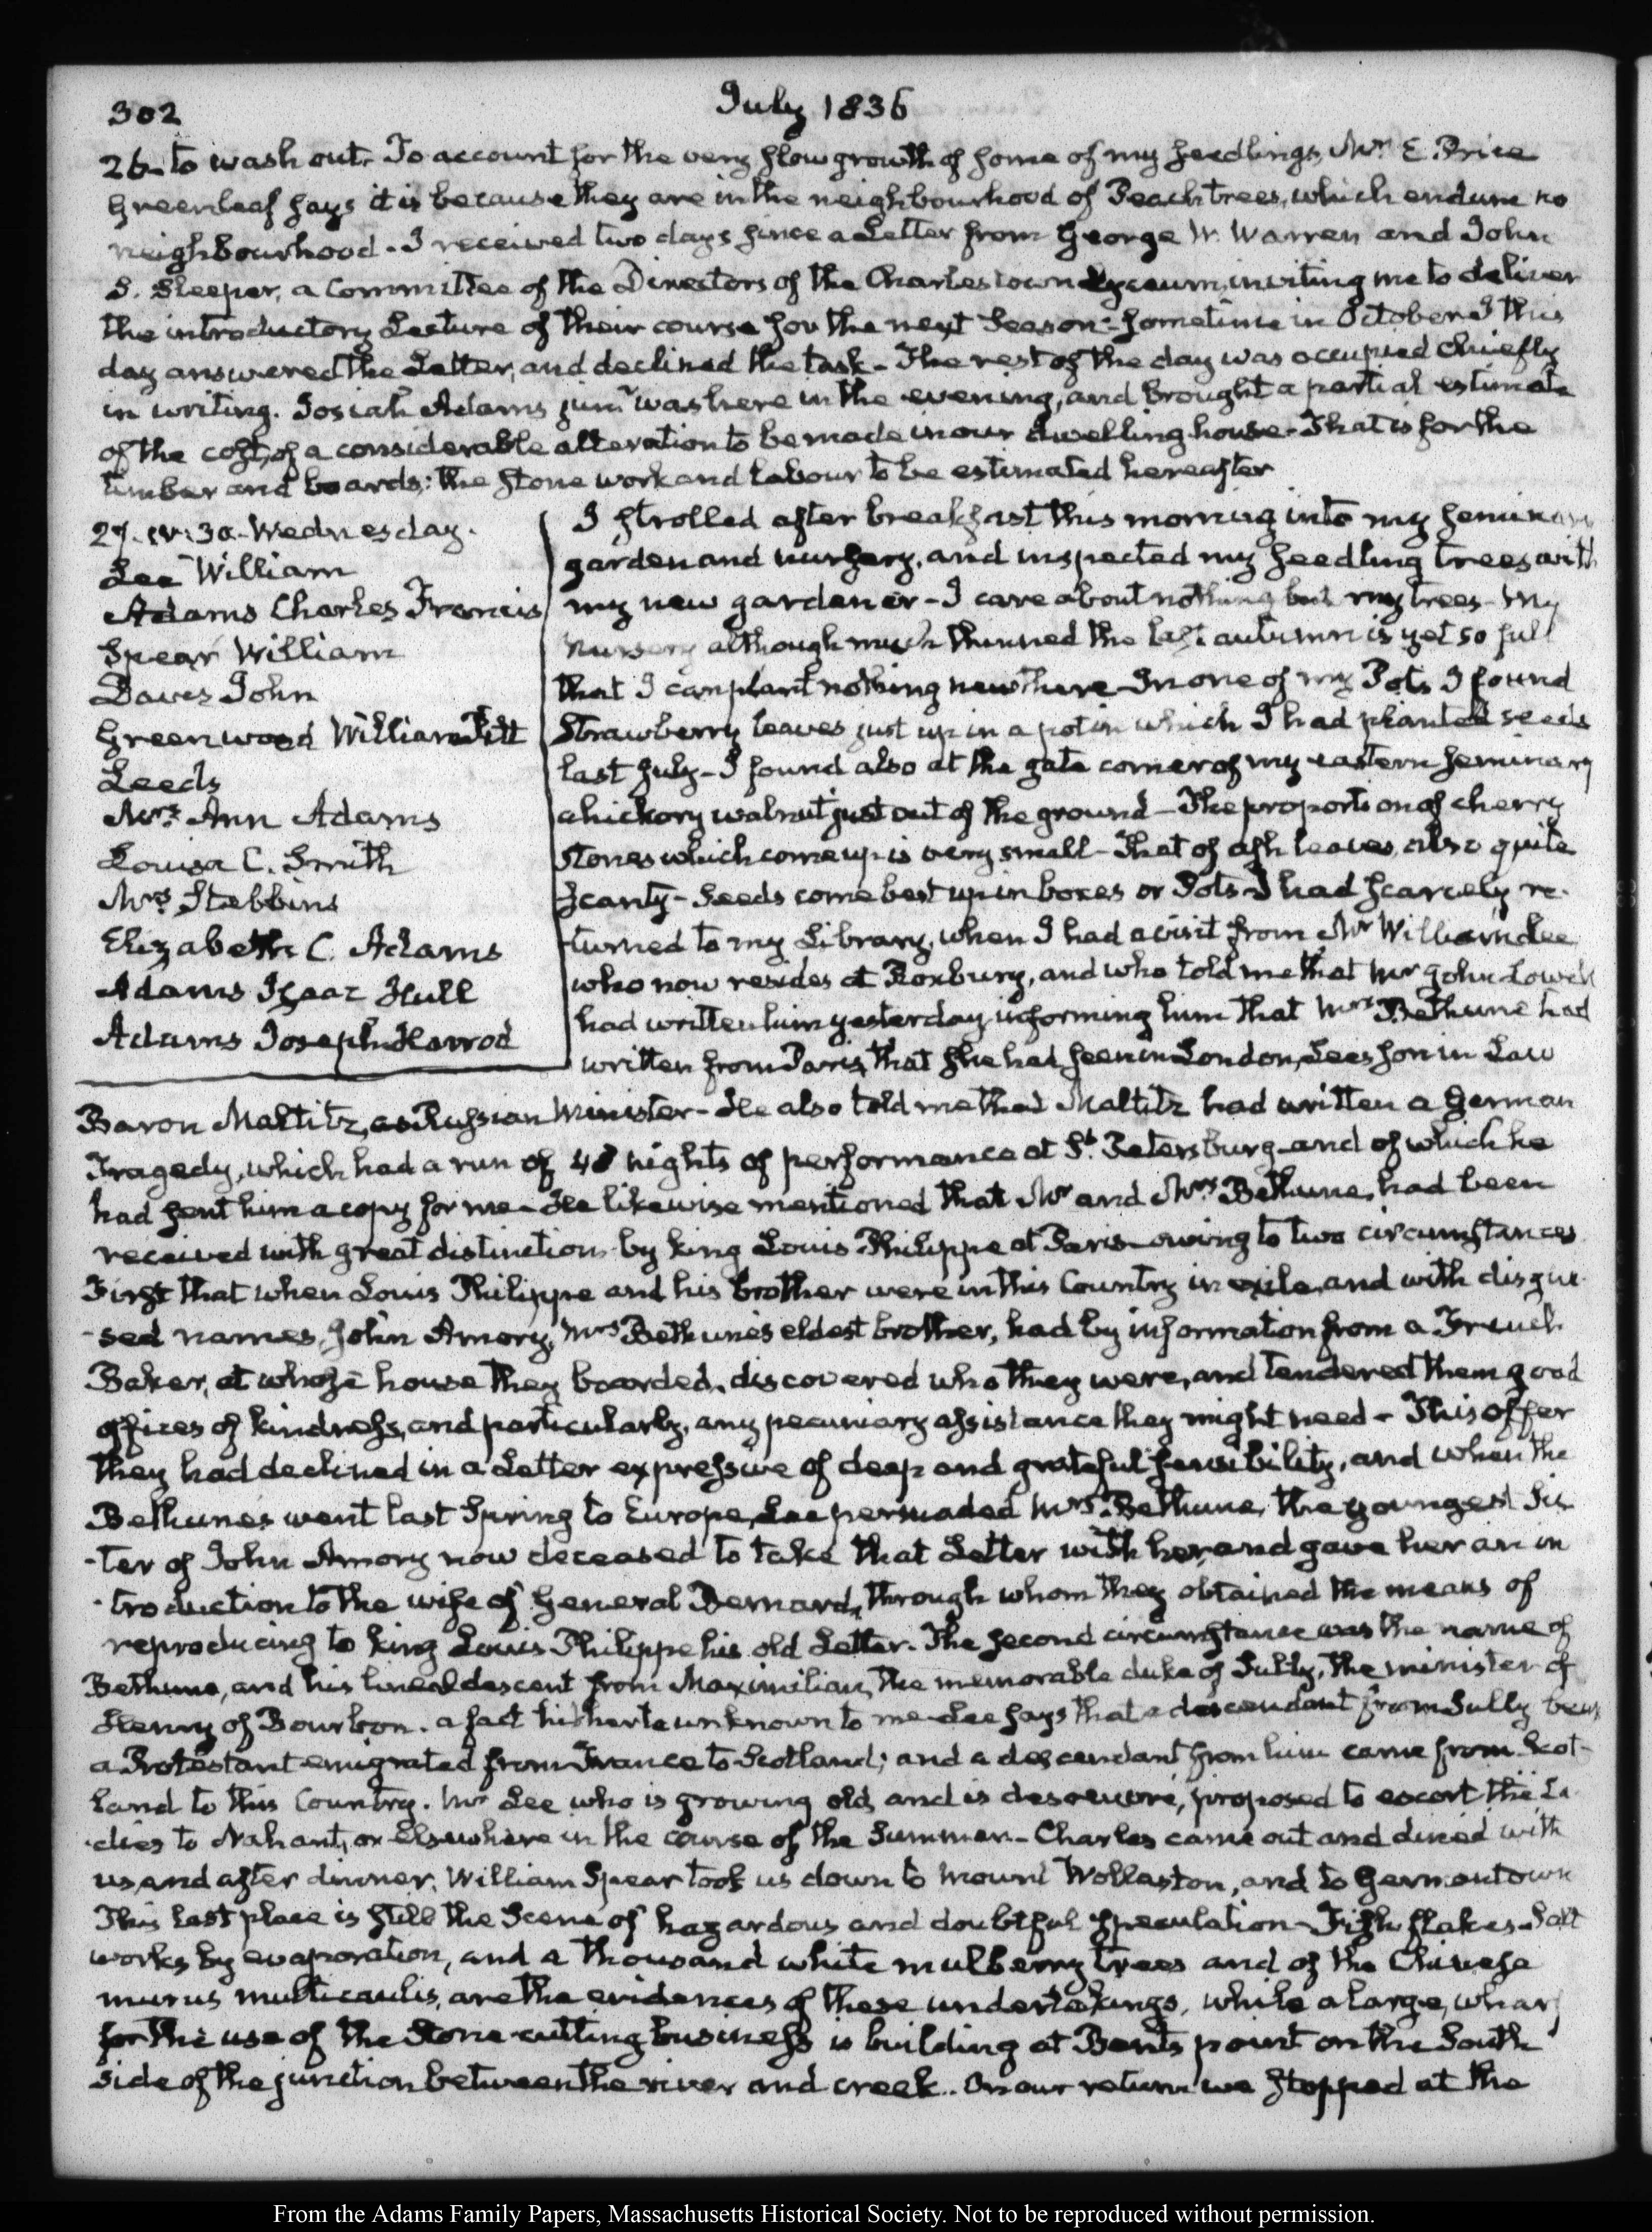 302
July 1836
26. to wash out. To account for the very slow growth of some of my seedlings, Mr. E. Price
Greenleaf says it is because they are in the neighbourhood of Peach trees, which endure no
neighbourhood - I received two days since a Letter from George W. Warren and John
S. Sleeper, a Committee of the Directors of the Charlestown Lyceum, inviting me to deliver
the introductory Lecture of their course for the next Season - sometime in October I this
day answered the Letter, and declined the task - The rest of the day was occupied chiefly
in writing. Josiah Adams junr. was here in the evening, and brought a partial estimate
of the cost, of a considerable alteration to be made in our dwelling house - That is for the
timber and boards: the stone work and labour to be estimated hereafter
27. IV:30. Wednesday.
Lee William
Adams Charles Francis
Spear William
Daves John
Greenwood William Pitt
Leeds
Mrs. Ann Adams
Louisa C. Smith
Mrs. Stebbins
Elizabeth C. Adams
Adams Isaac Hull
Adams Joseph Harrod
I strolled after breakfast this morning into my seminary
garden and nursery, and inspected my seedling trees with
my new gardener - I care about nothing but my trees - My
nursery although much thinned the last autumn is yet so full
that I can plant nothing new there - In one of my Pots I found
Strawberry leaves just up in a pot in which I had planted seeds
last July - I found also at the gate corner of my eastern seminary
a hickory walnut just out of the ground - The proportion of cherry
stones which come up is very small - That of ash leaves also quite
scanty - Seeds come best up in boxes or Pots - I had scarcely re-
turned to my Library, when I had a visit from Mr William Lee
who now resides at Roxbury, and who told me that Mr John Lowell
had written him yesterday informing him that Mrs Bethune had
written from Paris, that she had seen in London, Lees son in Law
Baron Maltitz, as Russian Minister - He also told me that Maltitz had written a German
Tragedy, which had a run of 48 nights of performance at St. Petersburg - and of which he
had sent him a copy for me - He likewise mentioned that Mr and Mrs Bethune, had been
received with great distinction by king Louis Philippe at Paris - owing to two circumstances
First that when Louis Philippe and his brother were in this Country in exile, and with disgui-
-sed names, John Amory, Mrs Bethune's eldest brother, had by information from a French
Baker, at whose house they boarded, discovered who they were, and tendered them good
offices of kindness, and particularly, any pecuniary assistance they might need - This offer
they had declined in a Letter expressive of deep and grateful sensibility, and when the
Bethunes went last Spring to Europe, Lee persuaded Mrs. Bethune, the youngest Sis
-ter of John Amory now deceased to take that Letter with her, and gave her an in
-troduction to the wife of General Bernard, through whom they obtained the means of
reproducing to king Louis Philippe his old Letter. The second circumstance was the name of
Bethune, and his lineal descent from Maximilian, the memorable duke of Sully, the minister of
Henry of Bourbon. a fact hitherto unknown to me - Lee says that a descendant from Sully being
a Protestant emigrated from France to Scotland; and a descendant from him came from Scot-
land to this Country. Mr Lee who is growing old, and is desoeuvré, proposed to escort the La
-dies to Nahant, or elsewhere in the course of the Summer - Charles came out and dined with
us, and after dinner, William Spear took us down to Mount Wollaston, and to Germantown
This last place is still the Scene of hazardous and doubtful speculation - Fish flakes - Salt
works by evaporation, and a thousand white mulberry trees and of the Chinese
murus multicaulis, are the evidences of these undertakings, while a large, wharf
for the use of the Stone cutting business is building at Bents point on the South
side of the junction between the river and creek.. On our return we stopped at the
From the Adams Family Papers, Massachusetts Historical Society. Not to be reproduced without permission.